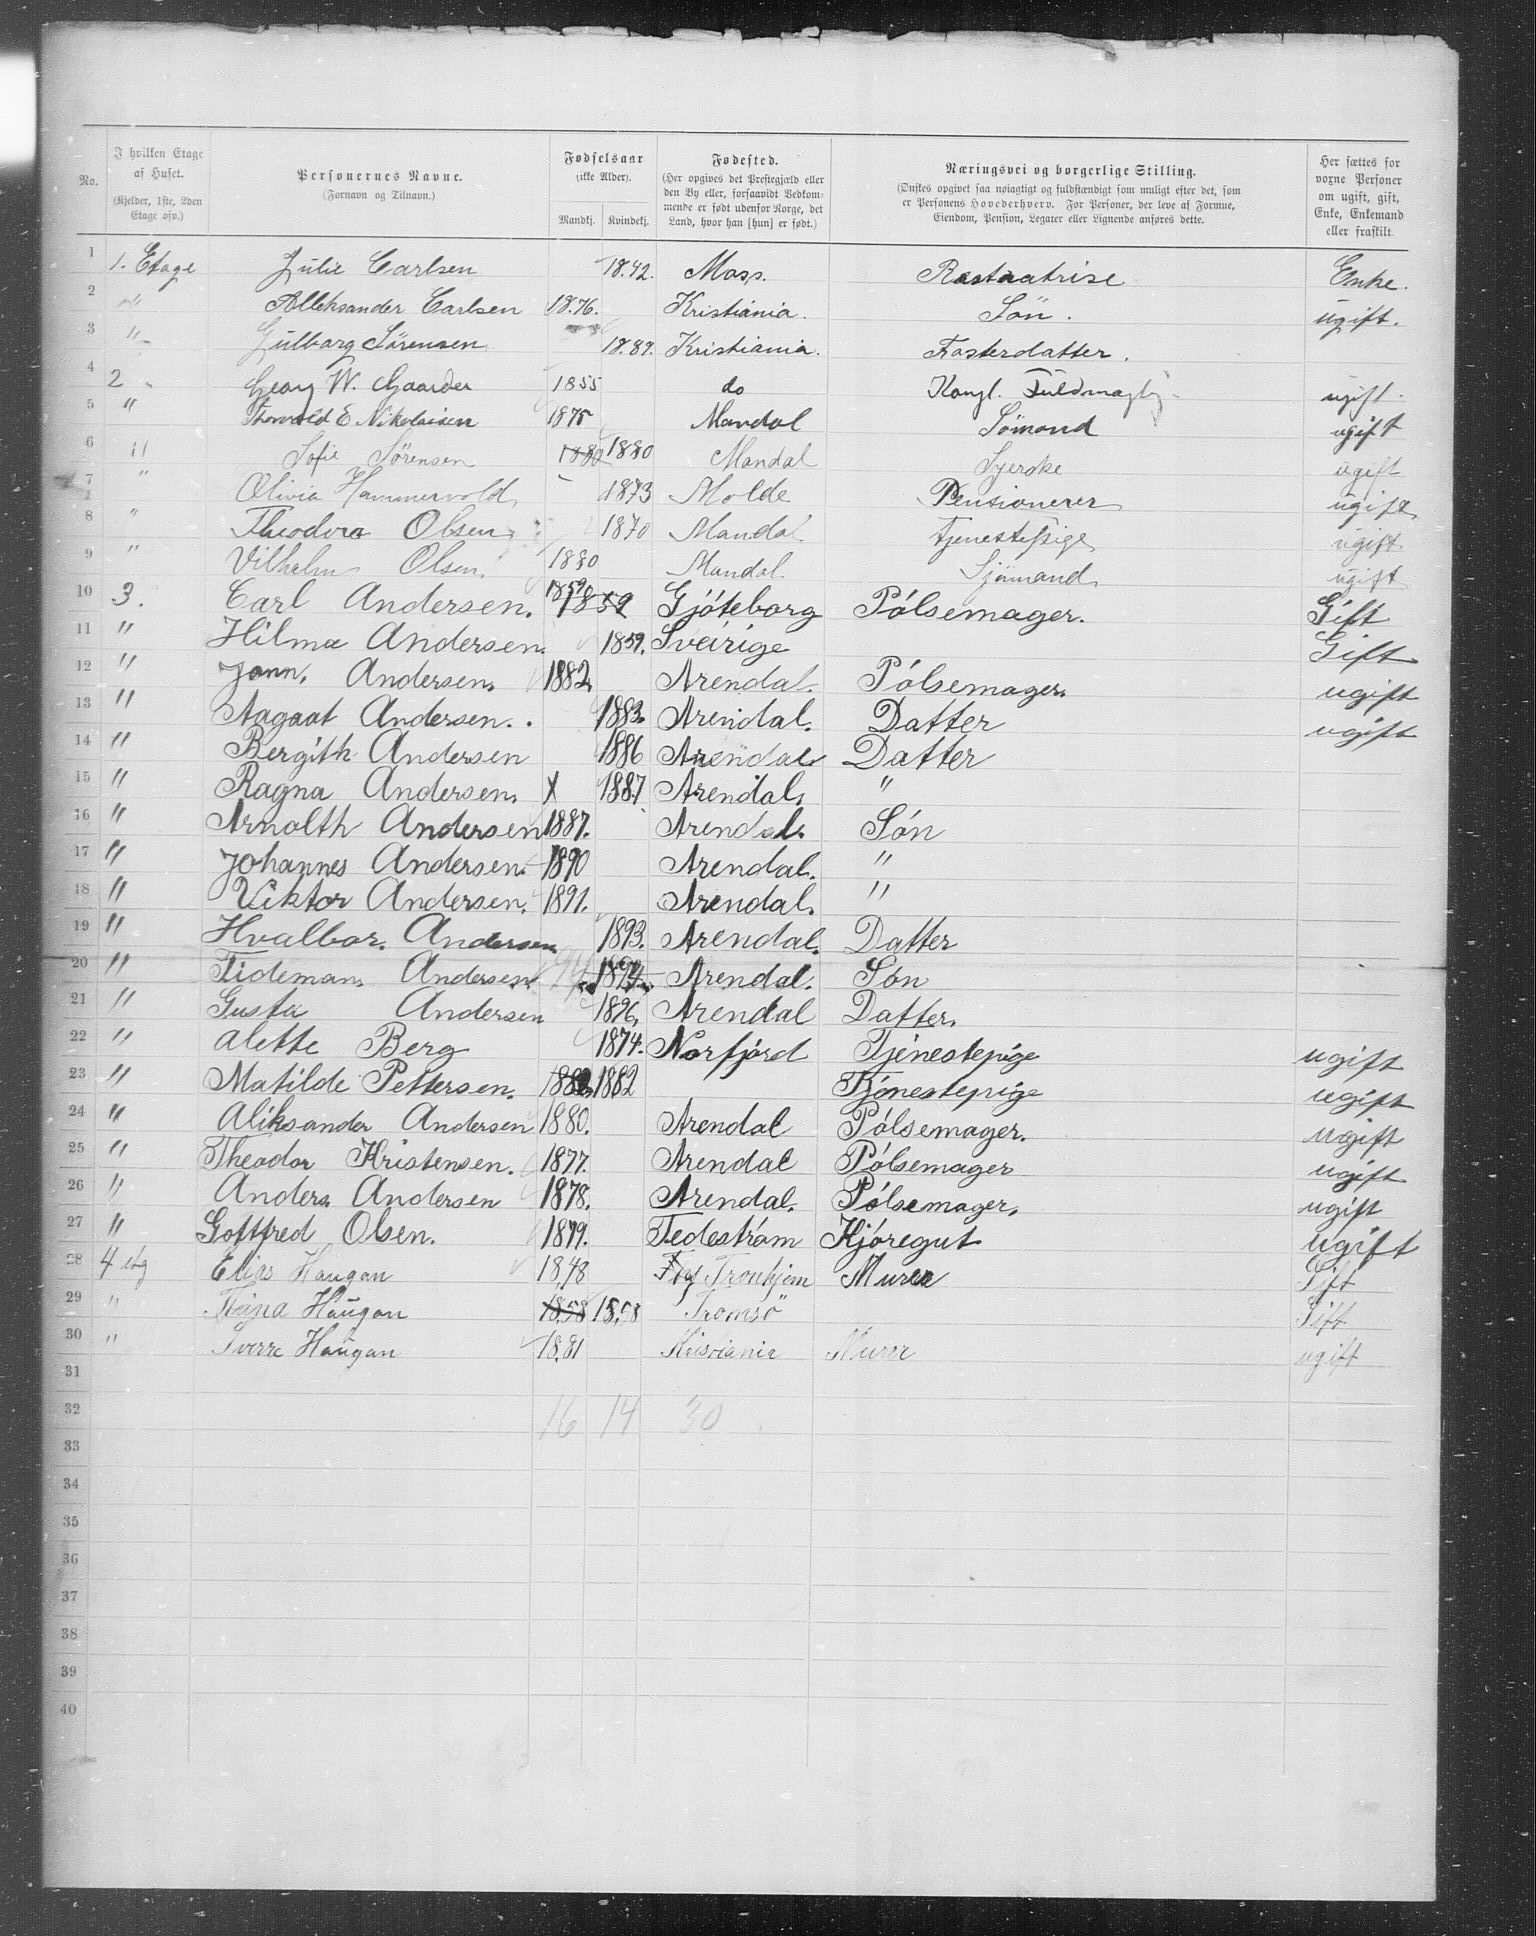 No. | I hvilken Etage af Huset. (Kjelder, 1ste, 2den Etage osv.) | Personernes Navne. (Fornavn og Tilnavn.) | Fødselsaar (ikke Alder). Mandkj. Kvindekj. | Fødested. (Her opgives det Prestegjæld eller den By eller, forsaavidt Vedkommende er født udenfor Norge, det Land, hvor han [hun] er født.) | Næringsvei og borgerlige Stilling. (Ønskes opgivet saa nøiagtigt og fuldstændigt som muligt efter det, som er Personens Hovederhverv. For Personer, der leve af Formue, Eiendom, Pension, Legater eller Lignende anføres dette. | Her sættes for voxne Personer om ugift, gift, Enke, Enkemand eller fraskilt.
1 1. Etage Julie Carlsen 1842. Moss. Restaatrise Enke.
2 " Alleksander Carlsen 1876. Kristiania. Søn. ugift.
3 " Gulborg Sørensen 1889. Kristiania. Fosterdatter.
4 2 " Georg W. Gaarder 1855 do Kongl. Fuldmægtig ugift.
5 " Thorvald E Nikolaisen 1875 Mandal Sömand ugift
6 " Sofie Sørensen 1880 1880 Mandal Syerske ugift
7 " Olivia Hammervold 1873 Molde Pensionerer ugift
8 " Theodora Olsen 1870 Mandal Tjenestepige ugift
9 " Vilhelm Olsen. 1880 Mandal Sjömand ugift
10 3. Carl Andersen. 1859 1859 Gjöteborg Pólsemager. Gift
11 " Hilma Andersen. 1859. Sveirige Gift
12 " John. Andersen. 1882. Arendal. Pólsemager. ugift
13 " Aagaat Andersen. 1883. Arendal. Datter ugift
14 " Bergith Andersen 1886 Arendal Datter
15 " Ragna Andersen. X 1887 Arendal. "
16 " Arnolth Andersen 1887. Arendal. Són
17 " Johannes Andersen. 1890 Arendal. "
18 " Viktor Andersen. 1891. Arendal. "
19 " Hvalbor. Andersen 1893. Arendal. Datter
20 " Tideman Andersen 94 1894 Arendal. Són
21 " Gusta Andersen 1896. Arendal Datter.
22 " Alette Berg 1874. Norfjord Tjenestepige ugift
23 " Matilde Pettersen. 1882 1882 Tjenestepige ugift
24 " Aliksander Andersen 1880. Arendal Pólsemager. ugift
25 " Theodor Kristensen. 1877. Arendal Pólsemager ugift
26 " Anders Andersen 1878. Arendal. Pólsemager. ugift
27 " Gottfred Olsen. 1879. Tedeström Kjóregut ugift
28 4 etg Elias Haugan 1848 Tronhjem Murer Gift
29 " Haugan 1858 1858 Tromsö Gift
30 " Sverre Haugan 1881 Kristiania Murer ugift
31
32 16 14 30
33
34
35
36
37
38
39
40